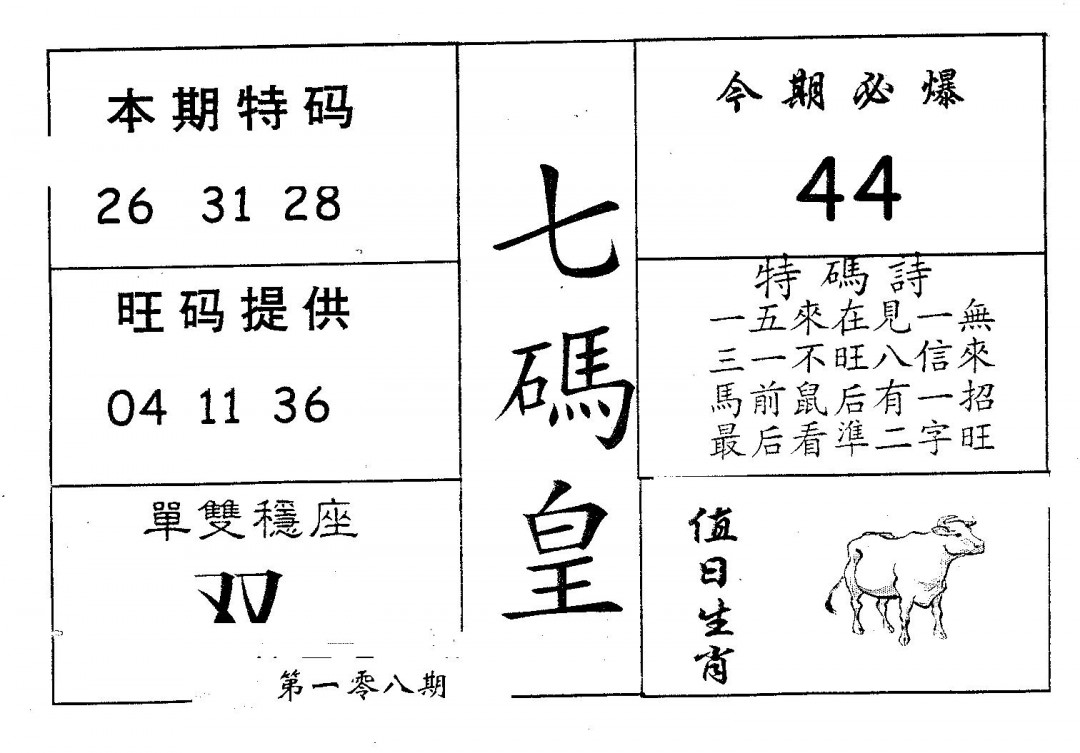 本期特码
26 31 28
旺码提供
04 11 36
單雙穩座
双
第一零八期
七碼皇
今期必爆
44
特碼詩
一五來在見一無
三一不旺八信來
馬前鼠后有一招
最后看準二字旺
值日生肖